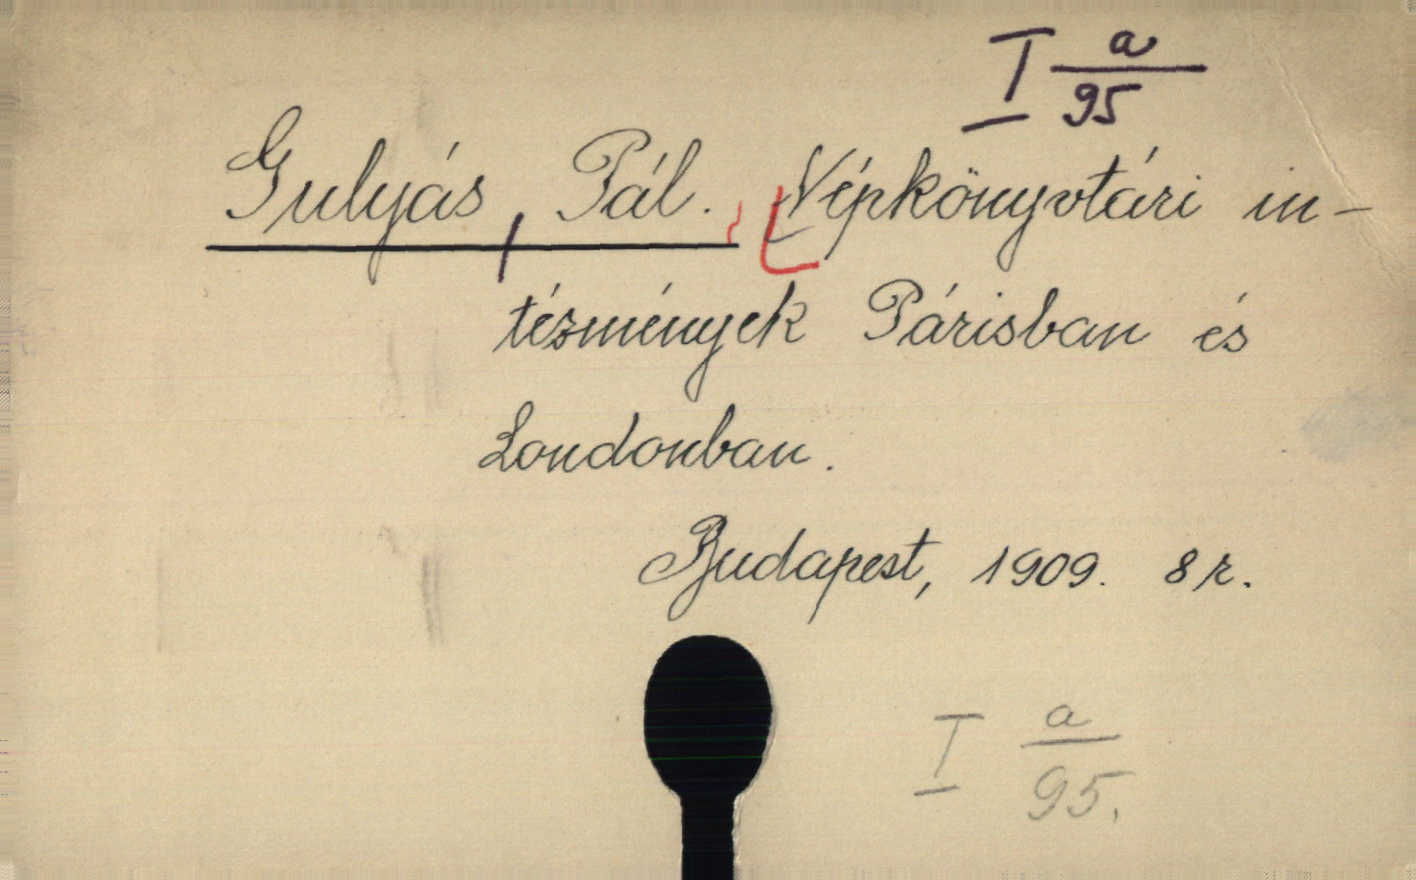 I a/95
Gulyás, Pál. Népkönyvtári in-
tézmények Párisban és
Londonban.
Budapest, 1909. 8 r.
I a/95.